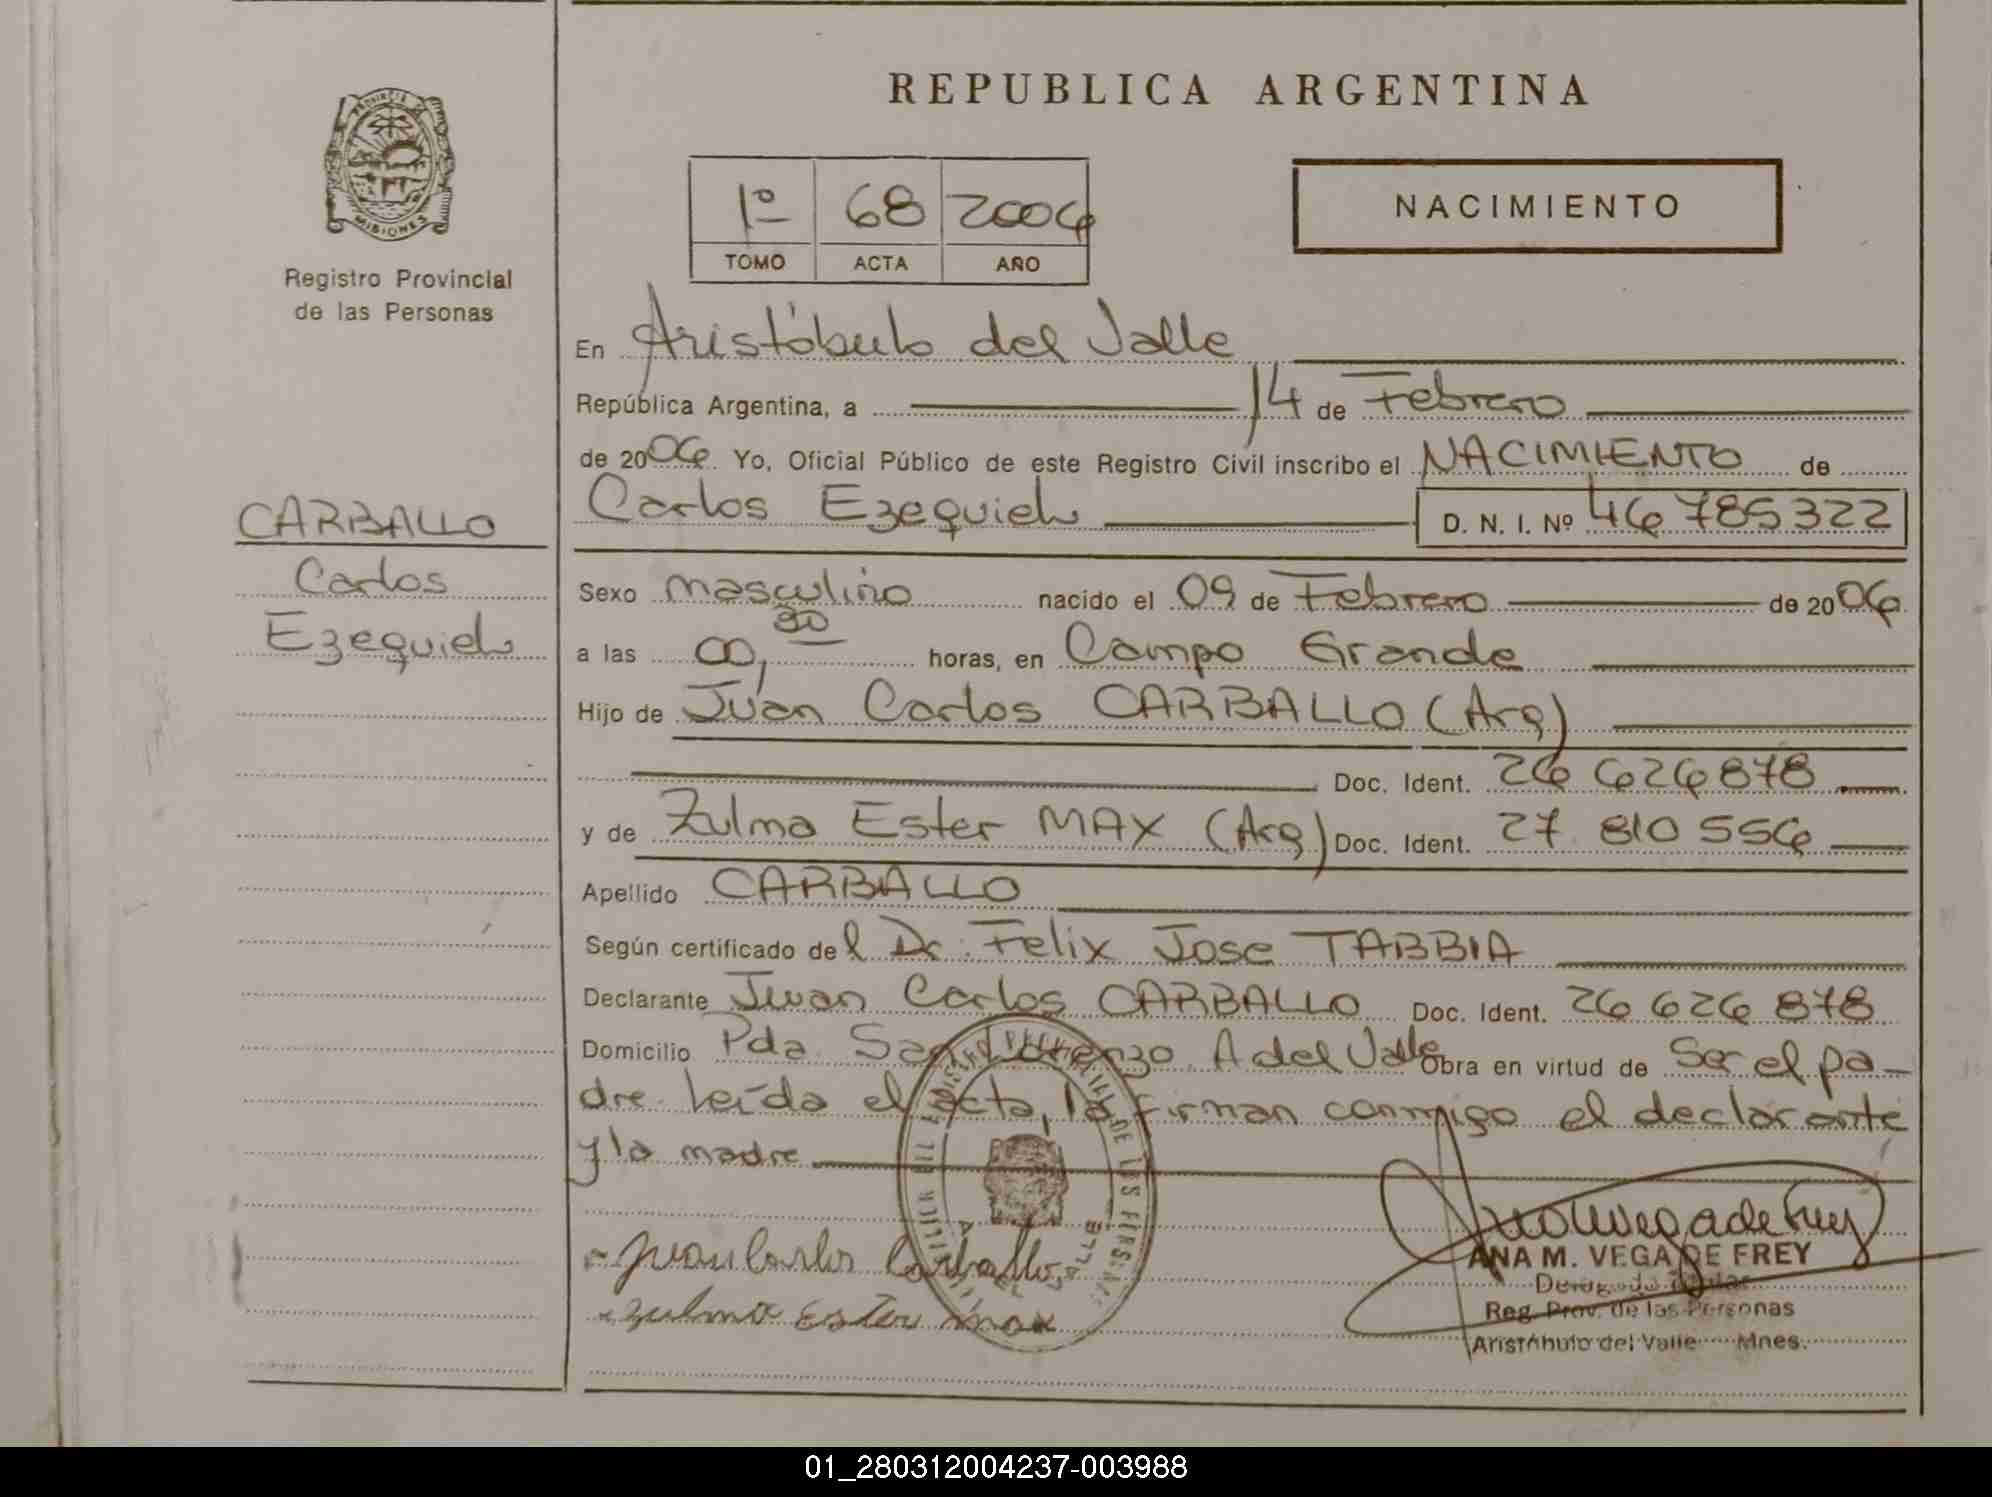 REPUBLICA ARGENTINA
PROVINCIA DE
MISIONES
Registro Provincial
de las Personas
1º 68 2006
TOMO ACTA AÑO
NACIMIENTO
En Aristóbulo del Valle
República Argentina, a 14 de Febrero
de 2006. Yo, Oficial Público de este Registro Civil inscribo el NACIMIENTO de
Carlos Ezequiel D. N. I. Nº 46 785322
CARBALLO
Carlos
Ezequiel
Sexo masculino nacido el 09 de Febrero de 2006
a las 00,30 horas, en Campo Grande
Hijo de Juan Carlos CARBALLO (Arg)
Doc. Ident. 26 626878
y de Zulma Ester MAX (Arg) Doc. Ident. 27 810 556
Apellido CARBALLO
Según certificado del Dr. Felix Jose TABBIA
Declarante Juan Carlos CARBALLO Doc. Ident. 26 626 878
Domicilio Pda. San Lorenzo A del Valle Obra en virtud de Ser el pa-
dre. Leída el acta, la firman conmigo el declarante
y la madre
Juan Carlos Carballo
zulma Ester max
ANA M. VEGA DE FREY
Reg. Prov. de las Personas
Aristóbulo del Valle Mnes.
01_280312004237-003988